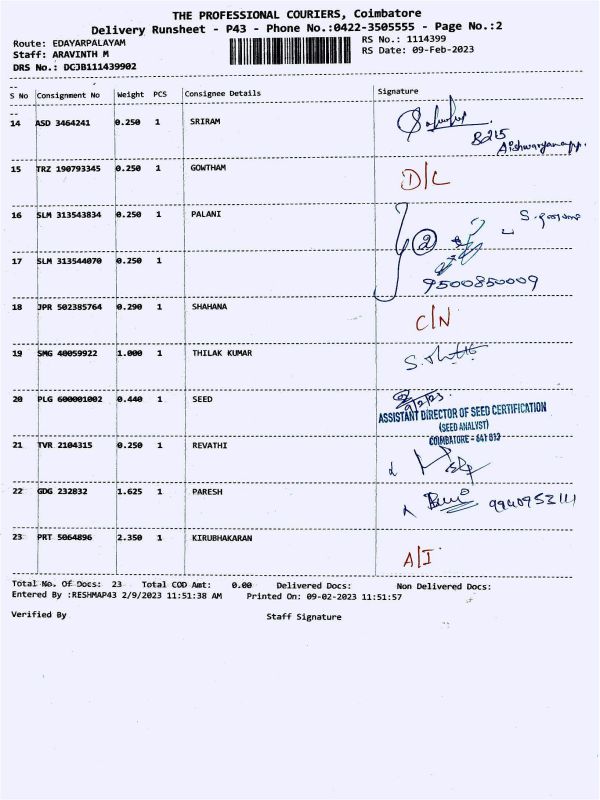 THE PROFESSIONAL COURIERS, Coimbatore
Delivery Runsheet - P43 - Phone No.:0422-3505555 - Page No.:2
Route: EDAYARPALAYAM
Staff: ARAVINTH M
DRS No.: DCJB111439902
RS No.: 1114399
RS Date: 09-Feb-2023
S No Consignment No Weight PCS Consignee Details Signature
14 ASD 3464241 0.250 1 SRIRAM
8215
15 TRZ 190793345 0.250 1 GOWTHAM D/L
16 SLM 313543834 0.250 1 PALANI
2
17 SLM 313544070 0.250 1
9500850009
18 JPR 502385764 0.290 1 SHAHANA C/N
19 SMG 40059922 1.000 1 THILAK KUMAR
20 PLG 600001002 0.440 1 SEED
9/2/23
ASSISTANT DIRECTOR OF SEED CERTIFICATION
(SEED ANALYST)
COIMBATORE - 641 013
21 TVR 2104315 0.250 1 REVATHI
22 GDG 232832 1.625 1 PARESH
23 PRT 5064896 2.350 1 KIRUBHAKARAN A/I
Total No. Of Docs: 23 Total COD Amt: 0.00 Delivered Docs: Non Delivered Docs:
Entered By :RESHMAP43 2/9/2023 11:51:38 AM Printed On: 09-02-2023 11:51:57
Verified By Staff Signature